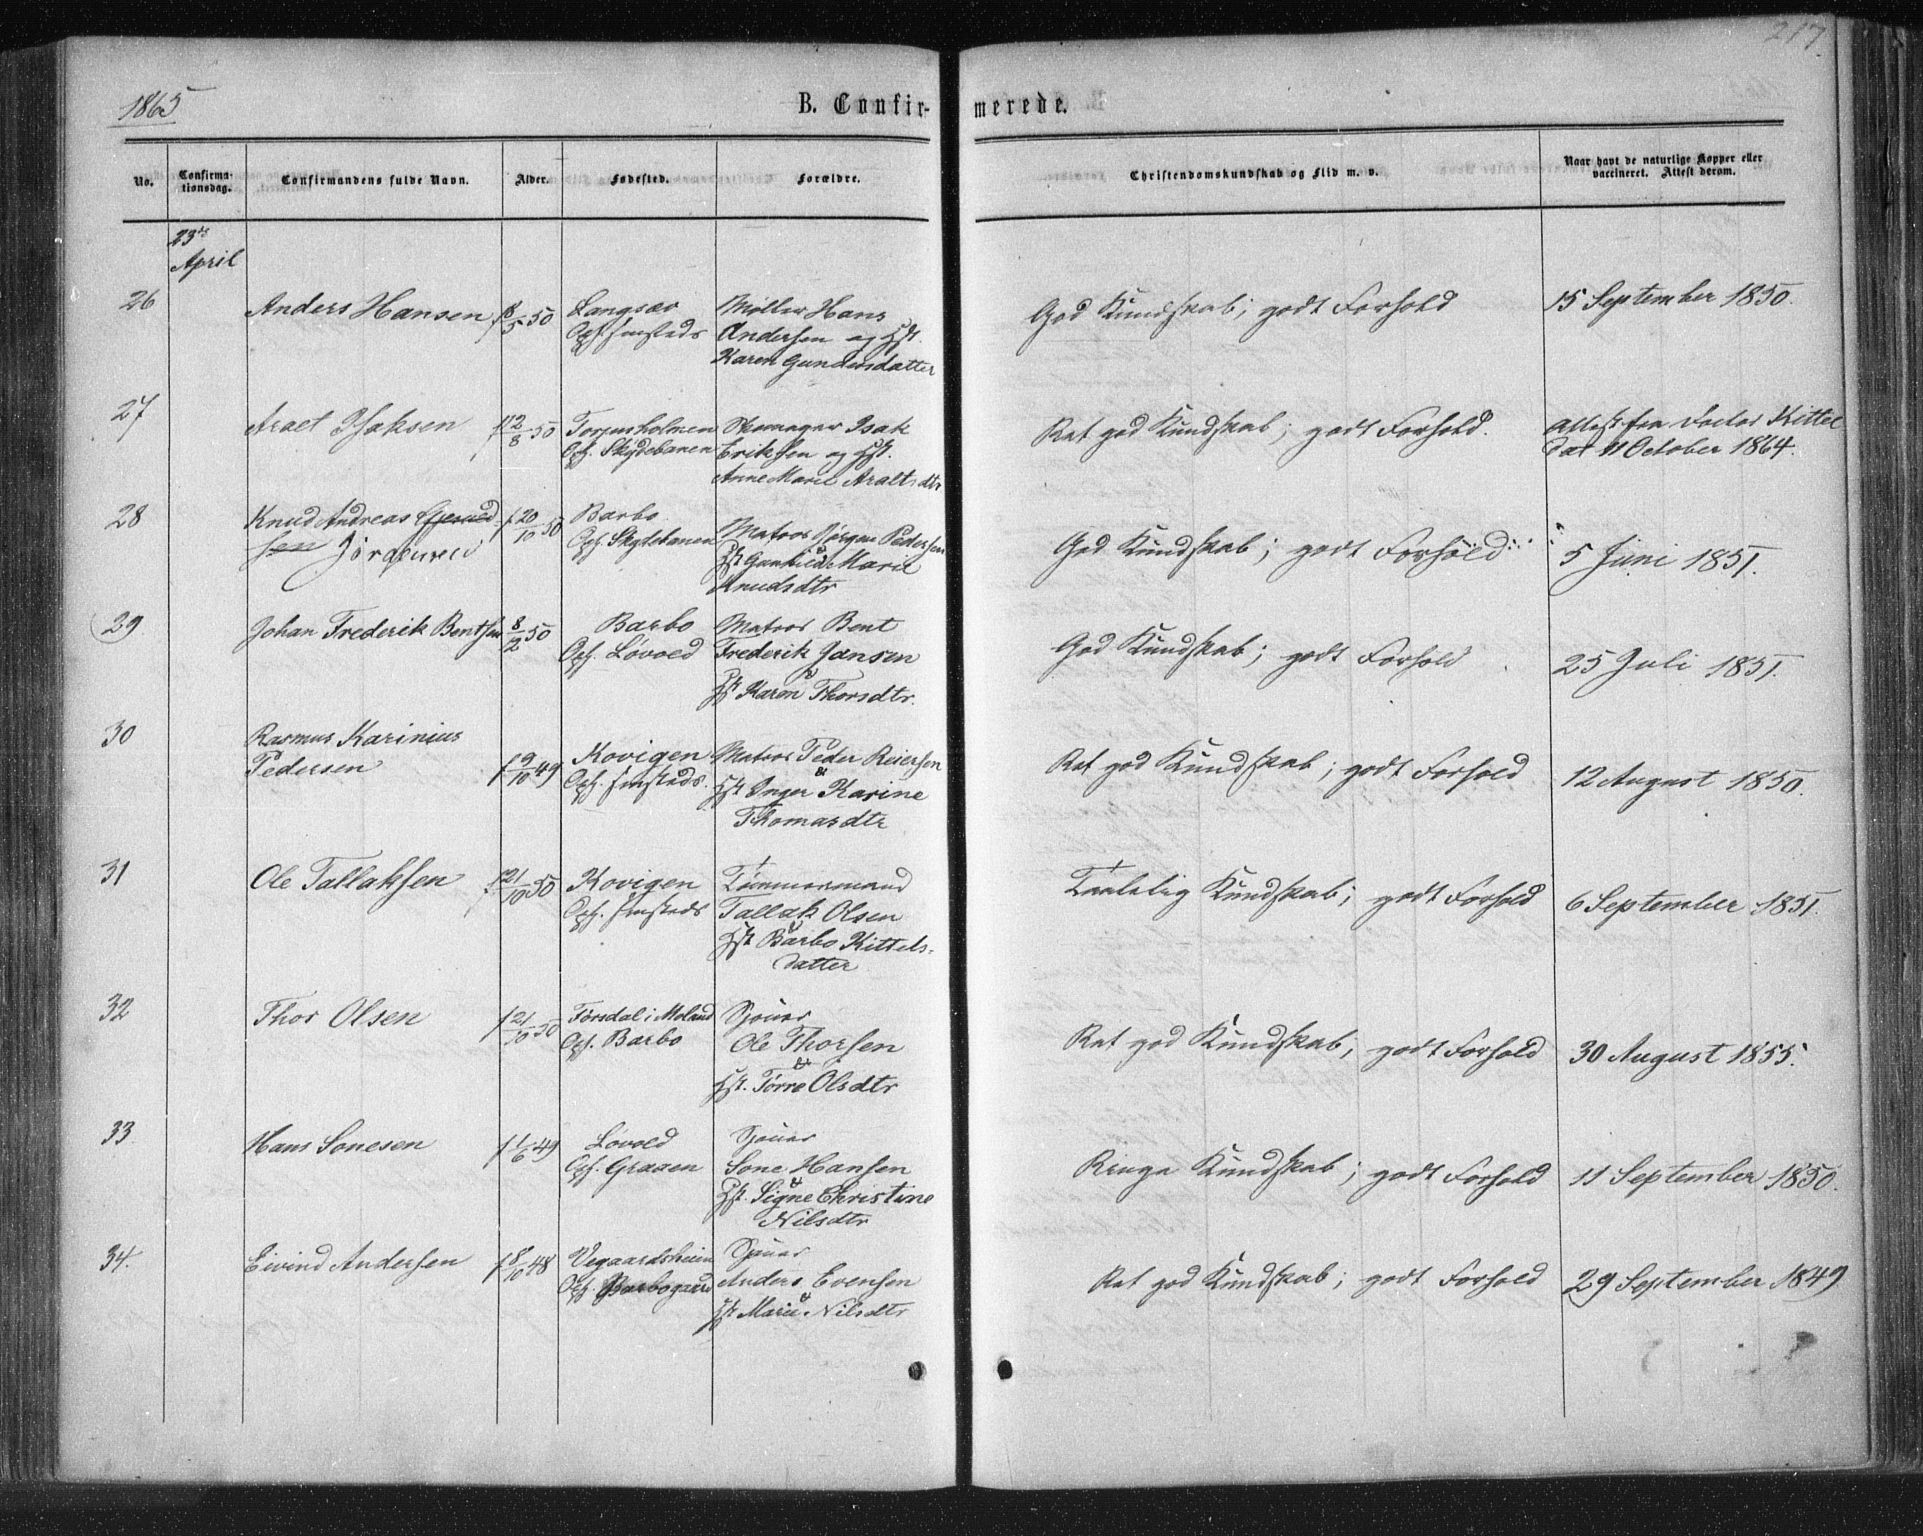 217.
1865
B. Confir-
merede.
No.
Confirma-
tionsdag.
Confirmandens fulde Navn.
Alder.
Fødested.
Forældre.
Christendomskundskab og Flid m. v.
Naar havt de naturlige Kopper eller
vaccineret. Attest derom.
23de
April
26
Anders Hansen
f 8/5 50
Langsæv
Opf.
Møller Hans
Andersen og Hst.
Karen Gundersdatter
God Kundskab; godt Forhold
15 September 1850.
27
Aralt Isaksen
f 12/8 50
Torjusholmen
Opf. Skydebanen
Skomager Isak
Eriksen og Hst.
Anne Marie Araltsdtr
Ret god Kundskab; godt Forhold.
Attest fra Doctor Kittel
dat 11 October 1864.
28
Knud Andreas
sen Jørgensen
f 20/10 50
Barbo
Opf. Skydebanen
Matros Jørgen Pedersen
& Hst Gunhild Marie
Knudsdtr
God Kundskab; godt Forhold
5 Juni 1851.
29
Johan Frederik Bentsen
8/2 50
Barbo
Opf. Løvold
Matros Bent
Frederik Jansen
& Hst Karen Thorsdtr.
God Kundskab; godt Forhold
25 Juli 1851.
30
Rasmus Karinius
Pedersen
f 9/10 49
Kovigen
Opf.
Matros Peder Reiersen
& Hst Inger Karine
Thomasdtr
Ret god Kundskab; godt Forhold
12 August 1850.
31
Ole Tallaksen
f 21/10 50
Kovigen
Opf.
Tømmermand
Tallak Olsen
& Hst Barbo Kittels-
datter
Taalelig Kundskab; godt Forhold
6 September 1851.
32
Thor Olsen
f 21/10 50
Torsdal i Moland
Opf. Barbo
Sjouer
Ole Thorsen
& Hst. Torre Olsdtr
Ret god Kundskab, godt Forhold
30 August 1855.
33
Hans Sonesen
f 1/6 49
Løvold
Opf. Graaen
Sjouer
Sone Hansen
& Hst. Signe Christine
Nilsdtr
Ringe Kundskab; godt Forhold
11 September 1850.
34.
Eivind Andersen
f 8/10 48
Vegaardsheien
Opf. Barbogaard
Sjouer
Anders Evensen
& Hst Marie Nilsdtr
Ret god Kundskab; godt Forhold
29 September 1849